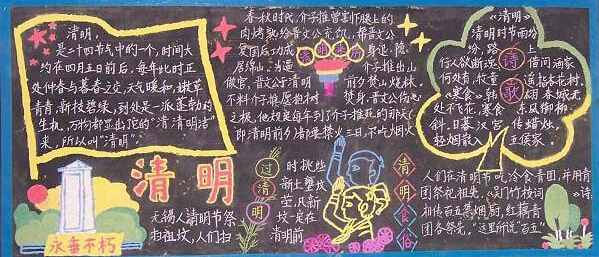 清明,
是二十四节气中的一个,时间大
约在四月五日前后,每年此时正
处仲春与暮春之交,天气暖和,嫩草
青青,新枝碧绿,到处是一派蓬勃的
生机,万物都显出它的“清清明洁”
来,所以叫“清明”.
清明
永垂不朽
无锡人清明节祭
扫祖坟,人们扫
春秋时代,介子推曾割下腿上的
肉烤熟给晋文公充饥,帮晋文公
复国.后功成
身退,隐
居绵山,为逼
介子推出山
做官,晋文公于清明
前夕焚山烧林,
不料介子推愿抱树
焚身,晋文公伤心
之极,他规定每年到了介子推死的那天(
即清明前夕)都要禁火三日,不吃烟火
过清明
时携些
新土壅坟
茔,凡新
坟一定在
清明前
清明食俗
《清明》
清明时节雨纷
纷,路上
行人欲断魂.借问酒家
何处有,牧童遥指杏花村.
《寒食》韩翃 春城无
处不飞花,寒食东风御柳
斜.日暮汉宫传蜡烛,
轻烟散入五侯家.
诗歌
人们在清明节吃冷食青团,并用青
团祭祀祖先.《吴门竹枝词》诗
相传百五禁烟厨,红藕青
团各祭先.”这里所说“百五”